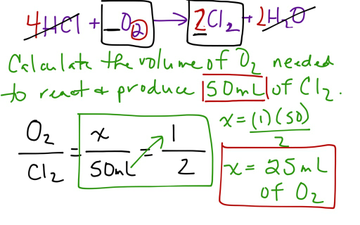 4HCl + _O₂ → 2Cl₂ + 2H₂O
Calculate the volume of O₂ needed
to react & produce 50mL of Cl₂.
O₂/Cl₂ = x/50mL = 1/2
x = (1)(50)/2
x = 25mL
of O₂